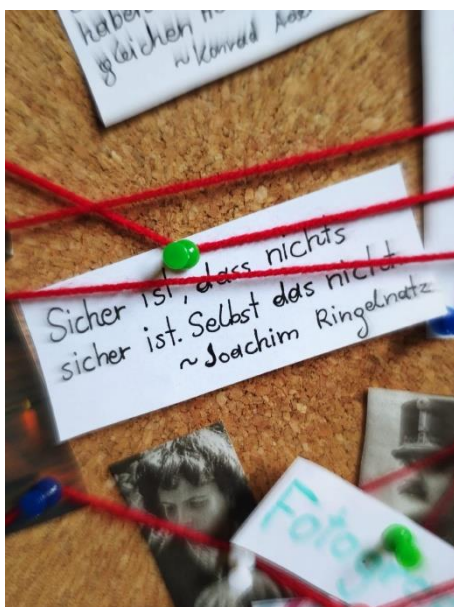 haben
gleichen
~ Konrad
Sicher ist, dass nichts
sicher ist. Selbst das nicht
~ Joachim Ringelnatz
Fotogra